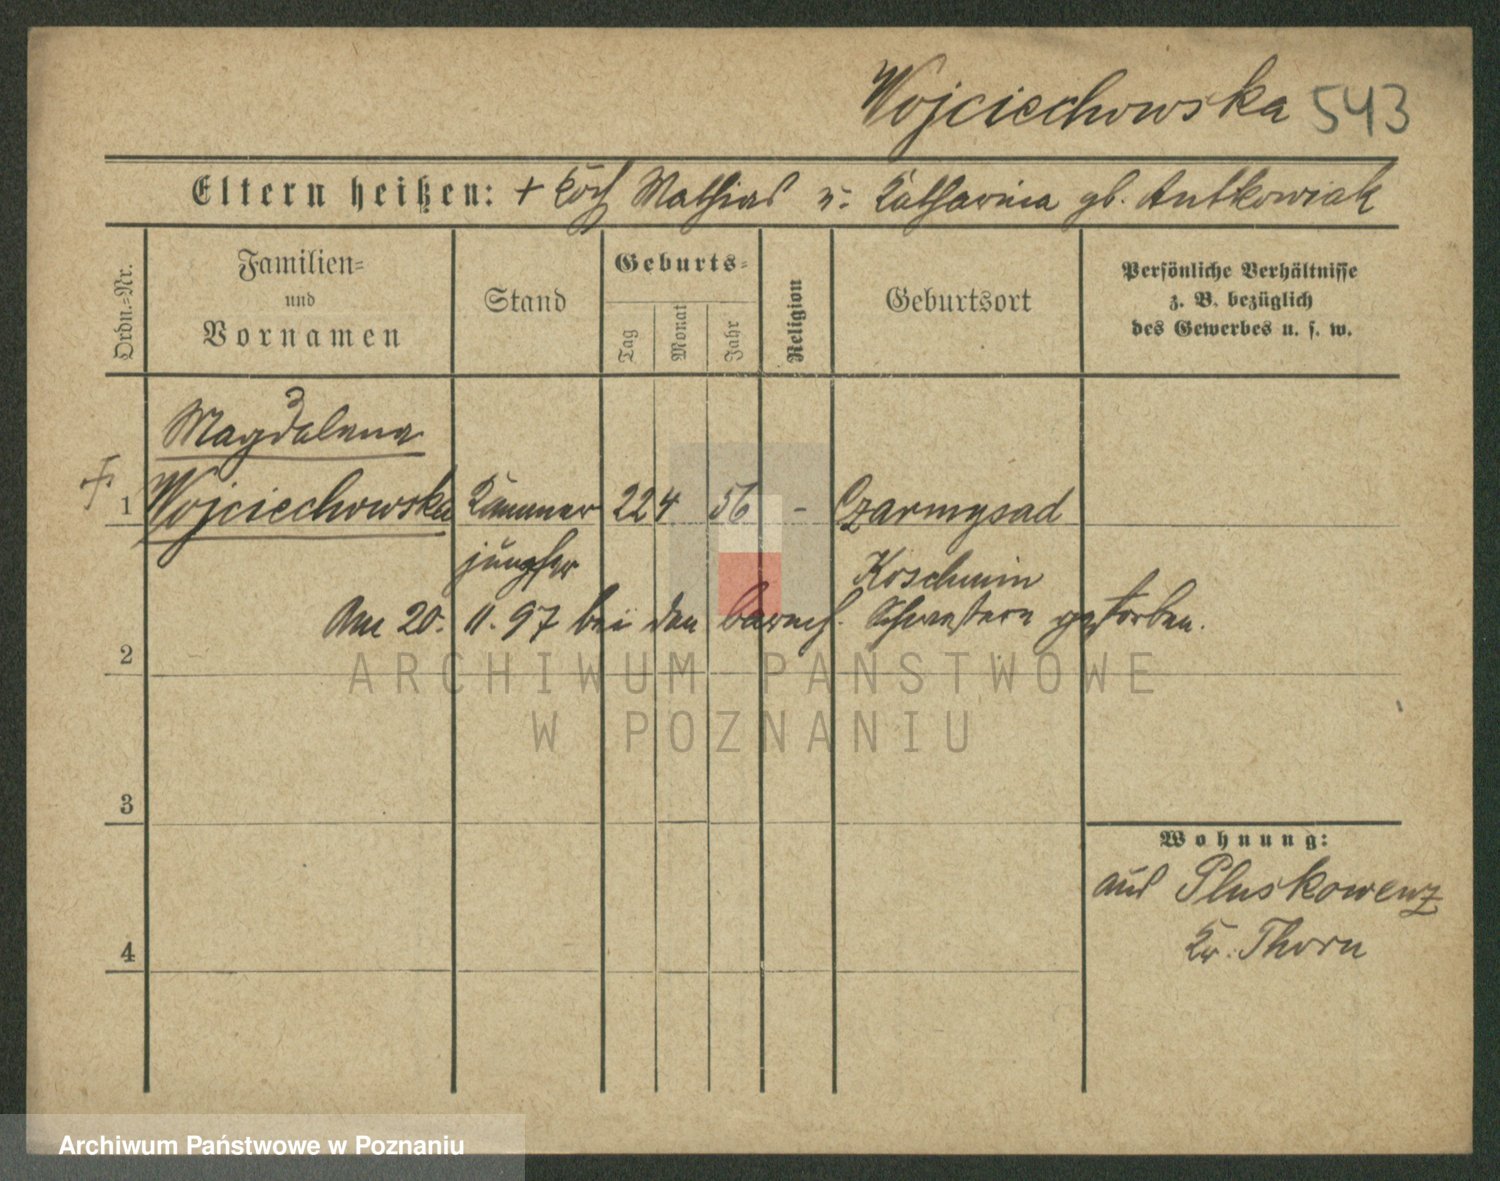 Wojciechowska 543
Eltern heißen: + Koch Mathias u. Katharina gb. Antkowiak
Ordn.=Nr.
Familien=
und
Vornamen
Stand
Geburts=
Tag
Monat
Jahr
Religion
Geburtsort
Persönliche Verhältnisse
z. B. bezüglich
des Gewerbes u. s. w.
Magdalena
+ 1 Wojciechowska Kammer 22 4 56 - Czarnysad
jungfer Koschmin
Am 20. 11. 97 bei den barmh. Schwestern gestorben.
2
ARCHIWUM PAŃSTWOWE
W POZNANIU
3
Wohnung:
aus Pluskowenz
4
Kr. Thorn
Archiwum Państwowe w Poznaniu